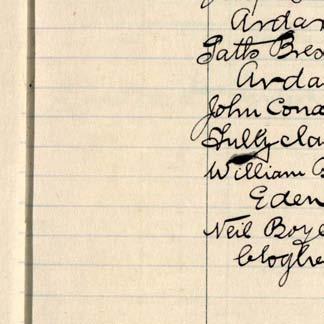 Ardar
Patk Bres
Arda
John Cona
Tully cla
William B
Eden
Neil Boyl
Cloghe